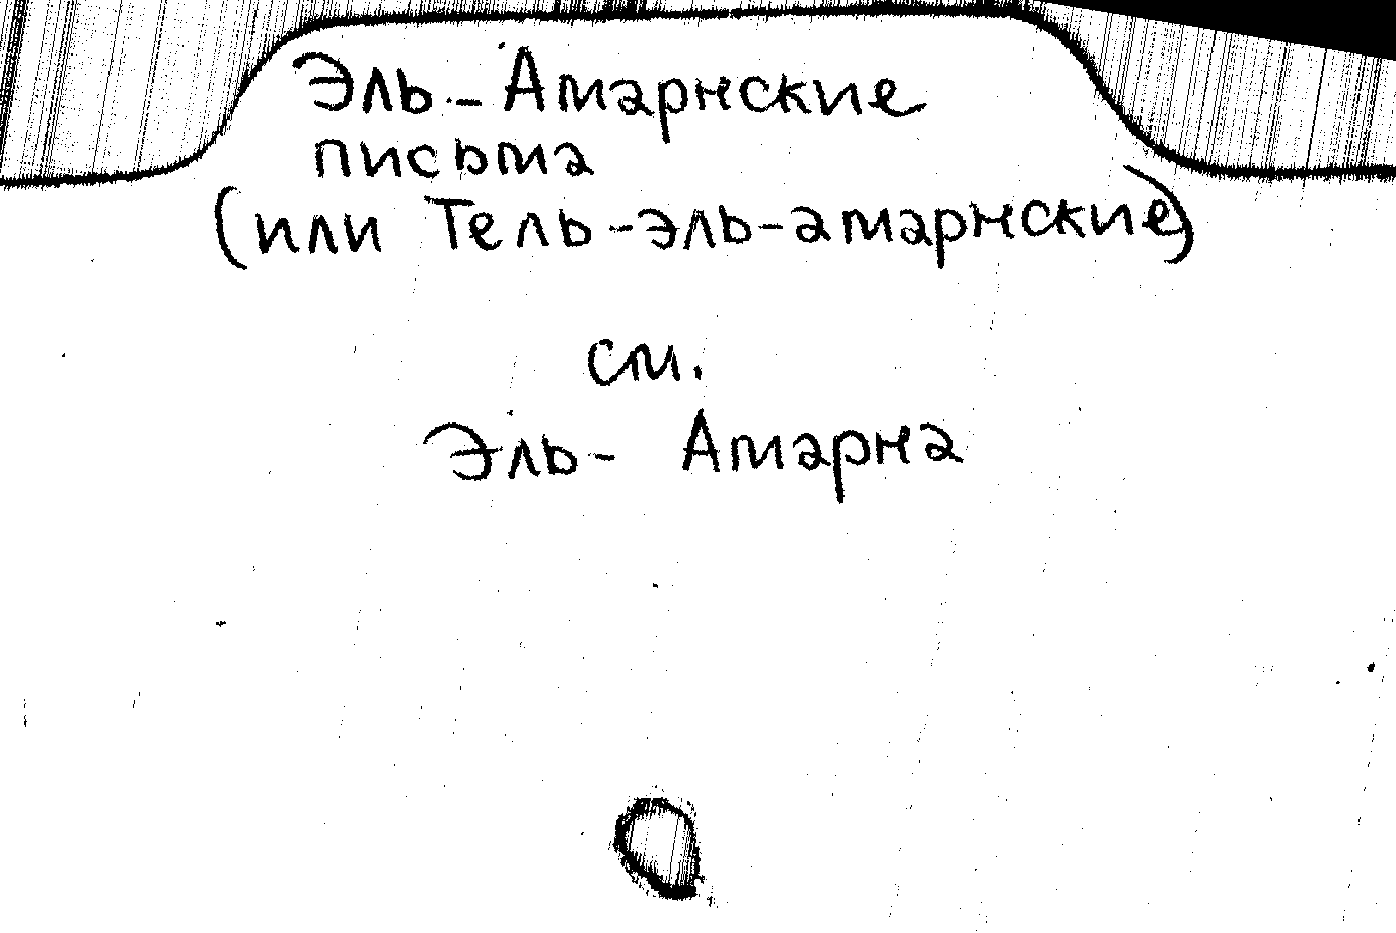 Эль-Амарнские
письма
(или Тель-эль-амарнские)
см.
Эль-Амарна